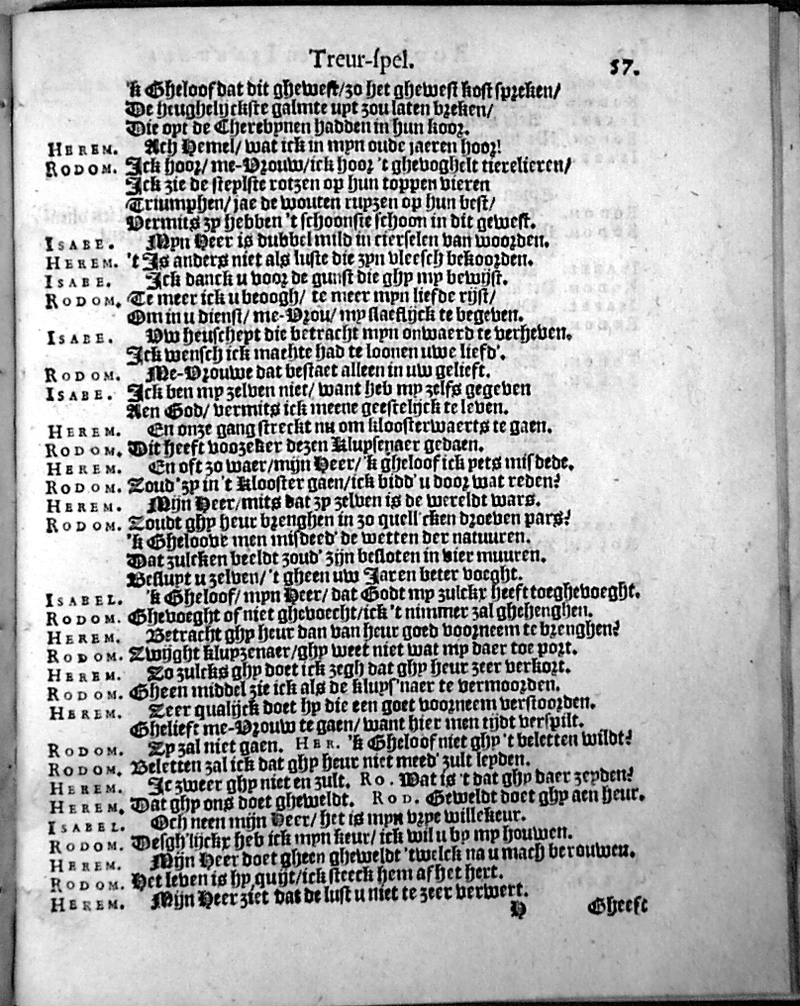 Treur-spel. 57.
'k Gheloof dat dit ghewest/zo het ghewest kost spreken/
De heughelyckste galmte uyt zou laten breken/
Die oyt de Cherebynen hadden in hun koor.
HEREM. Ach Hemel/wat ick in mijn oude jaeren hoor!
RODOM. Ick hoor/me-Vrouw/ick hoor 't ghevoghelt tierelieren/
Ick zie de steylste rotzen op hun toppen vieren
Triumphen/jae de wouten ruyzen op hun best/
Vermits zy hebben 't schoonste schoon in dit gewest.
ISABE. Myn Heer is dubbel mild in cierselen van woorden.
HEREM. 't Is anders niet als luste die zyn vleesch bekoorden.
ISABE. Ick danck u voor de gunst die ghy my bewijst.
RODOM. Te meer ick u beoogh/te meer myn liefde rijst/
Om in u dienst/me-Vrou/my slaeflyck te begeven.
ISABE. Uw heuscheyt die betracht myn onwaerd te verheven.
Ick wensch ick machte had te loonen uwe liefd'.
RODOM. Me-Vrouwe dat bestaet alleen in uw gelieft.
ISABE. Ick ben my zelven niet/want heb my zelfs gegeven
Aen God/vermits ick meene geestelijck te leven.
HEREM. En onze gang streckt nu om kloosterwaerts te gaen.
RODOM. Dit heeft voozeker dezen Kluysenaer gedaen.
HEREM. En oft zo waer/mijn Heer/'k gheloof ick yets misdede.
RODOM. Zoud' zy in 't Klooster gaen/ick bidd' u door wat reden?
HEREM. Mijn Heer/mits dat zy zelven is de wereldt wars.
RODOM. Zoudt ghy heur brenghen in zo quell'cken droeven pars?
'k Gheloove men misdeed' de wetten der natuuren.
Dat zulcken beeldt zoud' zijn besloten in vier muuren.
Besluyt u zelven/'t gheen uw Jaren beter voeght.
ISABEL. 'k Gheloof/myn Heer/dat Godt my zulckx heeft toeghevoeght.
RODOM. Ghevoeght of niet ghevoecht/ick 't nimmer zal ghehenghen.
HEREM. Betracht ghy heur dan van heur goed voorneem te brenghen?
RODOM. Zwijght kluyzenaer/ghy weet niet wat my daer toe port.
HEREM. Zo zulcks ghy doet ick zegh dat ghy heur zeer verkort.
RODOM. Gheen middel zie ick als de kluys'naer te vermoorden.
HEREM. Zeer qualijck doet hy die een goet voorneem verstoorden.
Ghelieft me-Vrouw te gaen/want hier men tijdt verspilt.
RODOM. Zy zal niet gaen. HER. 'k Gheloof niet ghy 't beletten wildt?
RODOM. Beletten zal ick dat ghy heur niet meed' zult leyden.
HEREM. Ic zweer ghy niet en zult. RO. Wat is 't dat ghy daer zeyden?
HEREM. Dat ghy ons doet gheweldt. ROD. Geweldt doet ghy aen heur.
ISABEL. Och neen mijn Heer/het is myn vrye willekeur.
RODOM. Desgh'lijckx heb ick myn keur/ick wil u by my houwen.
HEREM. Mijn Heer doet gheen gheweldt 'twelck na u mach berouwen.
RODOM. Het leven is hy quyt/ick steeck hem af het hert.
HEREM. Mijn Heer ziet dat de lust u niet te zeer verwert.
H Gheeft